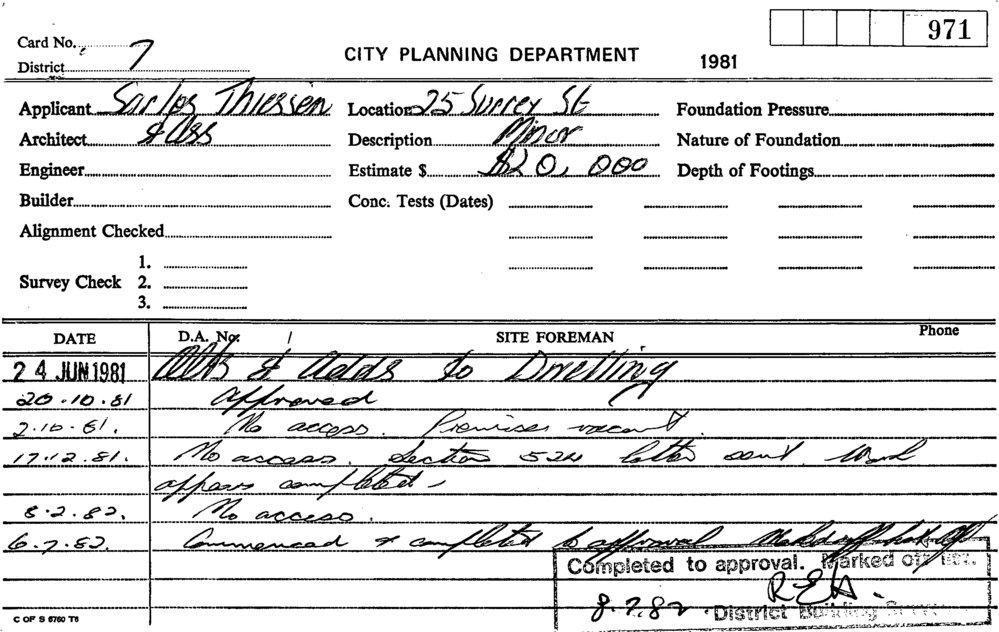 971
Card No. 7
District
CITY PLANNING DEPARTMENT 1981
Applicant Sarlos Thiessen Location 25 Surrey St Foundation Pressure
Architect & Ass Description Minor Nature of Foundation
Engineer Estimate $ $20,000 Depth of Footings
Builder Conc. Tests (Dates)
Alignment Checked
1.
Survey Check 2.
3.
DATE D.A. No: SITE FOREMAN Phone
24 JUN 1981 Alts & Adds to Dwelling
20.10.81 Approved
2.10.81. No access. Premises vacant.
17.12.81. No access. Section 524 letter sent. Work
appears completed.
8.2.82. No access.
6.7.82. Commenced & completed to approval
Completed to approval. Marked off
8.7.82 District Building
C OF S 6760 T6